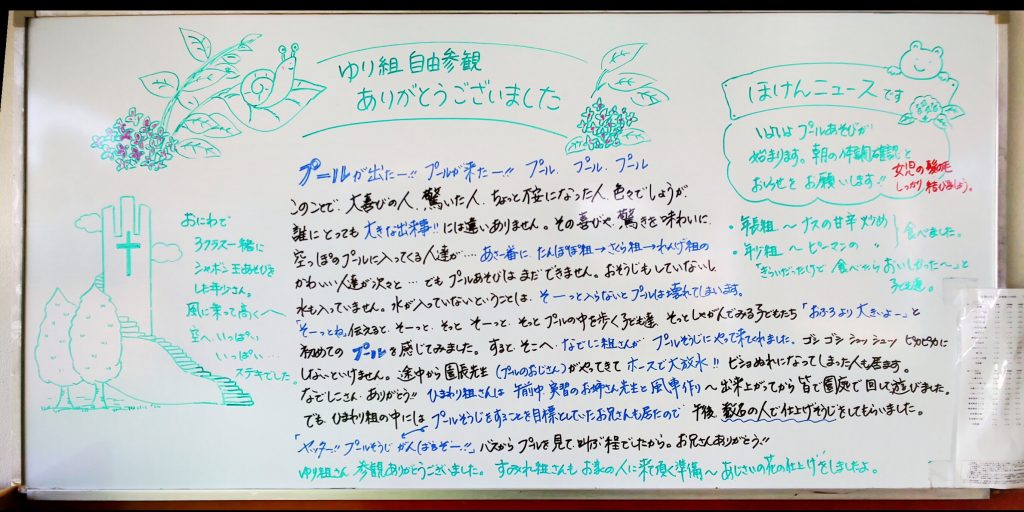 ゆり組 自由参観
ありがとうございました
ほけんニュースです
いよいよ プールあそびが
始まります。朝の体調確認と
お知らせをお願いします!!
女児の髪の毛
しっかり結びましょう。
・年長組 〜 ナスの甘辛炒め
・年少組 〜 ピーマンの 〃
食べました。
「きらいだったけど 食べたらおいしかった〜」と
子ども達。
おにわで
3クラス一緒に
シャボン玉あそびを
した年少さん。
風に乗って高く〜へ
空へ いっぱい
いっぱい…
ステキでした。
プールが出たー!! プールが来たー!! プール、プール、プール
このことで、大喜びの人、驚いた人、ちょっと不安になった人、色々でしょうが、
誰にとっても 大きな出来事!! には違いありません。その喜びや、驚きを味わいに、
空っぽのプールに入ってくる人達が… あさ一番に、たんぽぽ組→さくら組→れんげ組の
かわいい人達が次々と… でも プールあそびは まだできません。おそうじもしていないし
水も入っていません。水が入っていないということは、そーっと入らないとプールは壊れてしまいます。
「そーっとね」伝えると、そーっと、そっと そーっと、そっと プールの中を歩く子ども達、そっとしゃがんでみる子どもたち 「おふろより大きいよー」と
初めての プールを感じてみました。すると、そこへ、なでしこ組さんが プールそうじにやって来てくれました。ゴシ ゴシ シュッ シュッ ピカピカに
しないといけません。途中から園長先生(プールのおじさん)がやってきて ホースで大放水!! ビショぬれになってしまった人も居ます。
なでしこさん、ありがとう!! ひまわり組さんは 午前中、実習のお姉さん先生と風車作り〜出来上がってから 皆で園庭で 回して遊びました。
でも、ひまわり組の中には プールそうじをすることを目標としていたお兄さんも居たので 午後 数名の人で仕上げそうじをしてもらいました。
「ヤッター!! プールそうじ がんばるぞー!!」バスから プールを見て叫ぶ程でしたから。お兄さんありがとう!!
ゆり組さん 参観ありがとうございました。すみれ組さんも お家の人に来て頂く準備〜あじさいの花の仕上げをしましたよ。